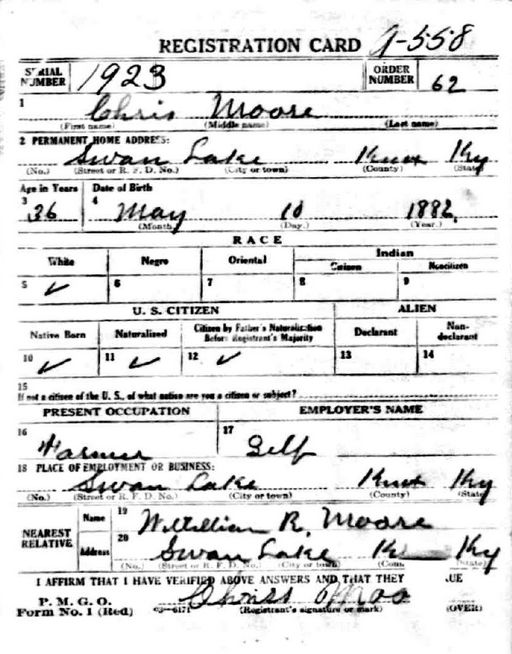 REGISTRATION CARD A-558
SERIAL NUMBER 1923 ORDER NUMBER 62
1 Chris Moore
(First name) (Middle name) (Last name)
2 PERMANENT HOME ADDRESS:
Swan Lake Knox Ky
(No.) (Street or R. F. D. No.) (City or town) (County) (State)
Age in Years Date of Birth
3 36 4 May 10 1882
(Month) (Day.) (Year.)
RACE
White Negro Oriental Indian
Citizen Noncitizen
5 ✓ 6 7 8 9
U. S. CITIZEN ALIEN
Native Born Naturalized Citizen by Father's Naturalization Before Registrant's Majority Declarant Non-declarant
10 ✓ 11 ✓ 12 ✓ 13 14
15
If not a citizen of the U. S., of what nation are you a citizen or subject?
PRESENT OCCUPATION EMPLOYER'S NAME
16 Farmer 17 Self
18 PLACE OF EMPLOYMENT OR BUSINESS:
Swan Lake Knox Ky
(No.) (Street or R. F. D. No.) (City or town) (County) (State)
NEAREST RELATIVE Name 19 William R. Moore
Address 20 Swan Lake Ky
(No.) (Street or R. F. D. No.) (City or town) (State)
I AFFIRM THAT I HAVE VERIFIED ABOVE ANSWERS AND THAT THEY UE
P. M. G. O.
Form No. 1 (Red) 03-6171 Moo
(Registrant's signature or mark) (OVER)